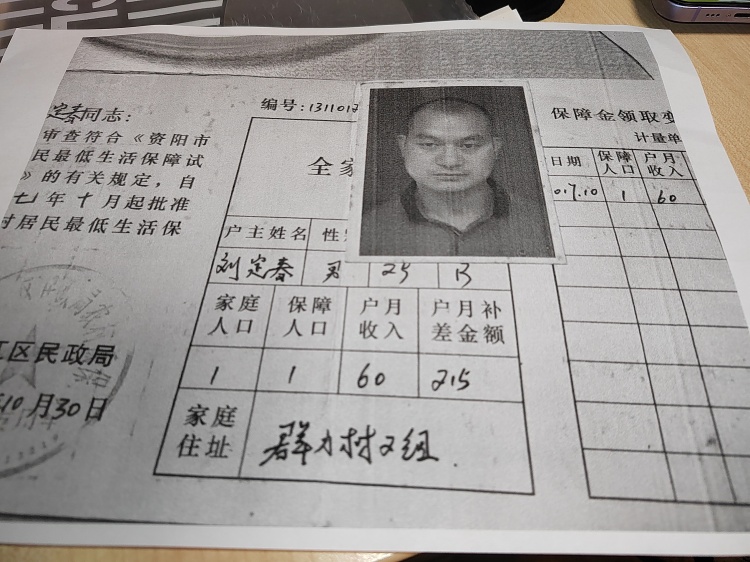 定春同志:
审查符合《资阳市
民最低生活保障试
》的有关规定，自
七年十月起批准
居民最低生活保
江区民政局
10月30日
编号:131101
全家
户主姓名 性
刘定春 男 25 B
家庭人口 保障人口 户月收入 户月补差金额
1 1 60 215
家庭住址 群力村2组
保障金领取变
计量单
日期 保障人口 户月收入
017.10 1 60